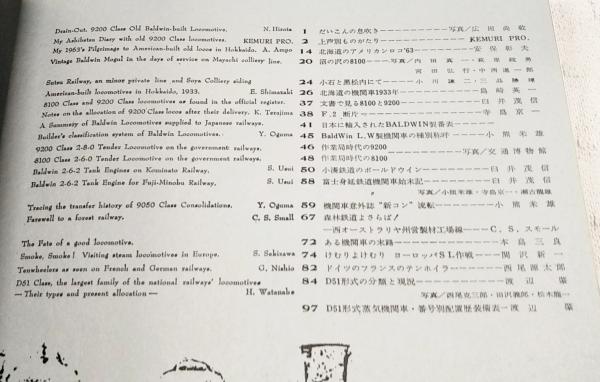 Dsain-Out. 9200 Class Old Baldwin-built Locomotive. N. Hirota 1 だいこんの息吹き 写真/広田尚敬
My Ashibetsu Diary with old 9200 Class locomotives. KEMURI PRO. 2 上芦別ものがたり KEMURI PRO.
My 1963's Pilgrimage to American-built old locos in Hokkaido. A. Ampo 14 北海道のアメリカンロコ'63 安保彰夫
Vintage Baldwin Mogul in the days of service on Mayachi colliery line. 20 沼の沢の8100 写真/内田真一・萩原政男
宮田弘行・中西進一郎
Suten Railway, an minor private line and Soya Colliery siding 24 小石と黒松内にて 小川謙二・三品勝暉
American-built locomotives in Hokkaido, 1933. E. Shimasaki 26 北海道の機関車1933年 島崎英一
8100 Class and 9200 Class locomotives as found in the official register. 37 文書で見る8100と9200 臼井茂信
Notes on the allocation of 9200 Class locos after their delivery. K. Terajima 38 F.2 断片 寺島京一
A Summary of Baldwin locomotives supplied to Japanese railways. 41 日本に輸入されたBALDWIN製番表
Builder's classification system of Baldwin Locomotives. Y. Oguma 45 BaldWin L.W製機関車の種別称呼 小熊米雄
9200 Class 2-8-0 Tender Locomotive on the government railways. 46 作業局時代の9200
写真/交通博物館
8100 Class 2-6-0 Tender Locomotive on the government railways. 48 作業局時代の8100
Baldwin 2-6-2 Tank Engines on Kominato Railway. S. Usui 50 小湊鉄道のボールドウイン 臼井茂信
Baldwin 2-6-2 Tank Engine for Fuji-Minobu Railway. S. Usui 58 富士身延鉄道機関車始末記 臼井茂信
写真/小熊米雄・寺島京一・瀬古龍雄
Tracing the transfer history of 9050 Class Consolidations. Y. Oguma 59 機関車意外誌 “新コン” 流転 小熊米雄
Farewell to a forest railway. C. S. Small 67 森林鉄道よさらば!
―西オーストラリヤ州営製材工場線― C. S. スモール
The Fate of a good locomotive. 72 ある機関車の末路 本島三良
Smoke, Smoke! Visiting steam locomotives in Europe. S. Sekizawa 74 けむりよけむり ヨーロッパSL作戦 関沢新一
Tenwheelers as seen on French and German railways. G. Nishio 82 ドイツのフランスのテンホイラー 西尾源太郎
D51 Class, the largest family of the national railways' locomotives
—Their types and present allocation— H. Watanabe 84 D51形式の分類と現況 渡辺肇
写真/西尾克三郎・田沢義郎・松本龍一
97 D51形式蒸気機関車・番号別配置歴装備表 渡辺肇